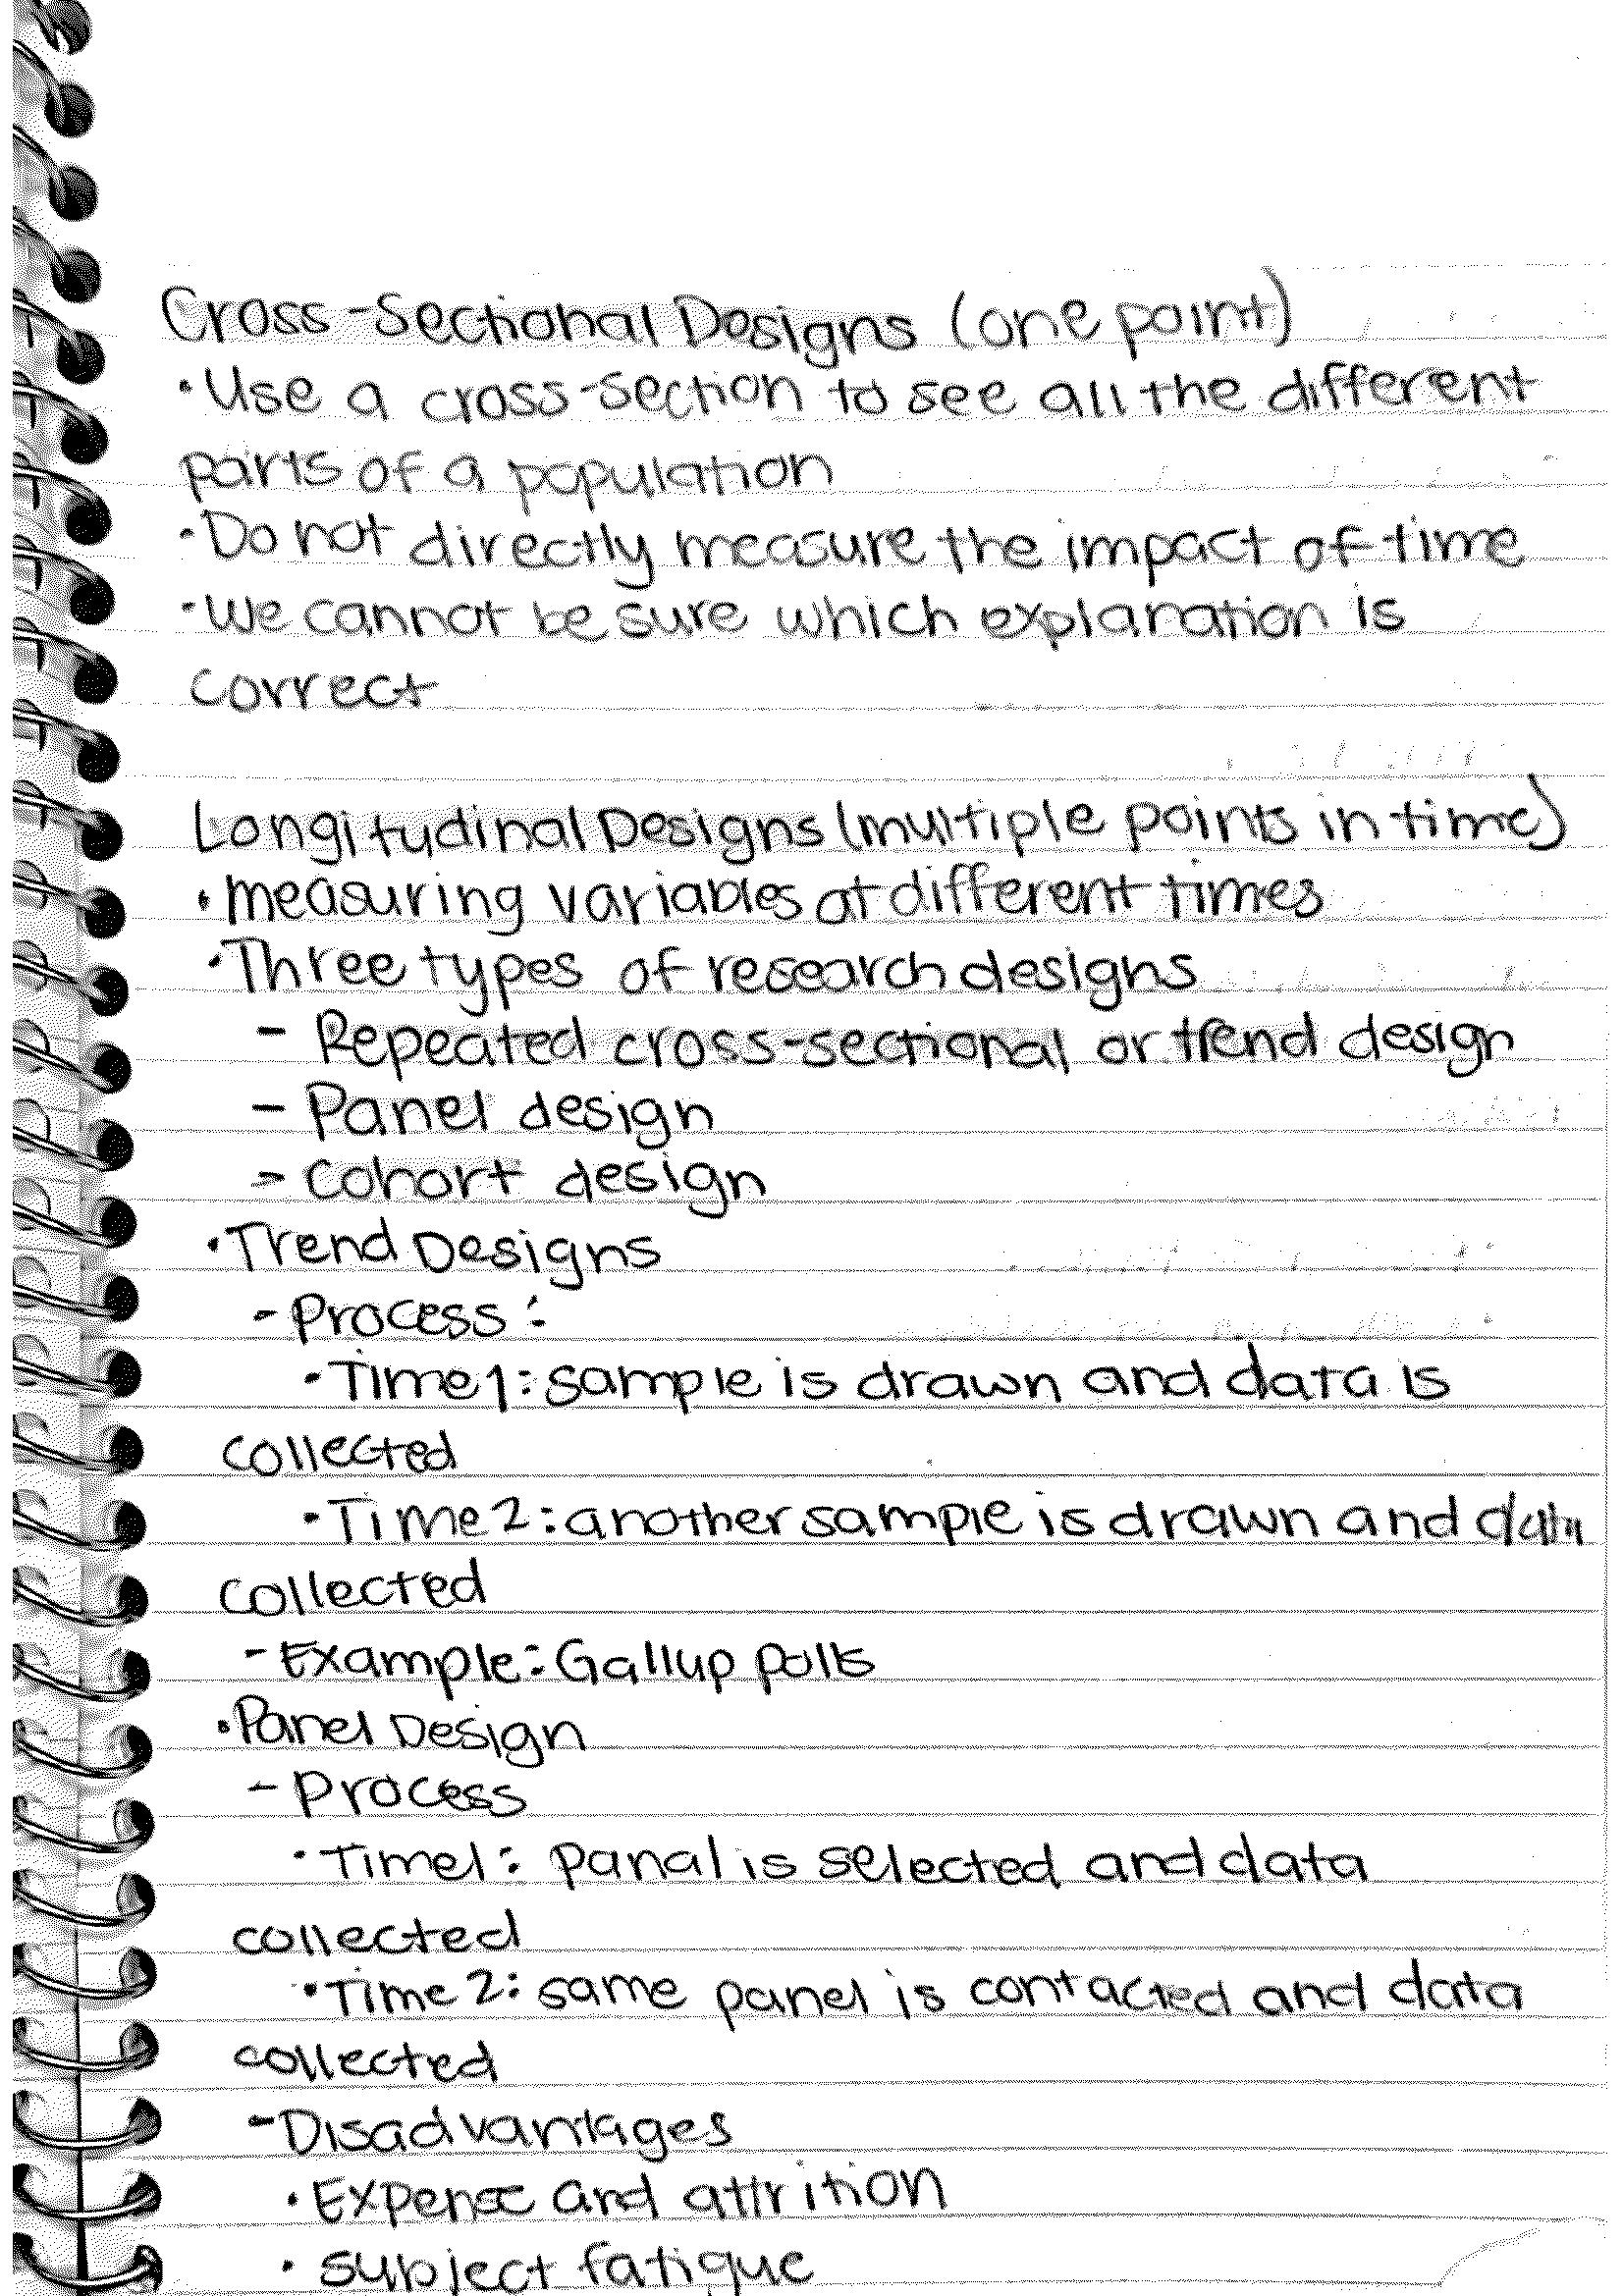 Cross-Sectional Designs (one point)
• Use a cross-section to see all the different
parts of a population
• Do not directly measure the impact of time
• We cannot be sure which explanation is
correct
Longitudinal Designs (multiple points in time)
• measuring variables at different times
• Three types of research designs
- Repeated cross-sectional or trend design
- Panel design
- Cohort design
• Trend Designs
- Process:
• Time 1: sample is drawn and data is
collected
• Time 2: another sample is drawn and data
collected
- Example: Gallup polls
• Panel Design
- Process
• Time 1: panal is selected and data
collected
• Time 2: same panel is contacted and data
collected
- Disadvantages
• Expense and attrition
• subject fatigue